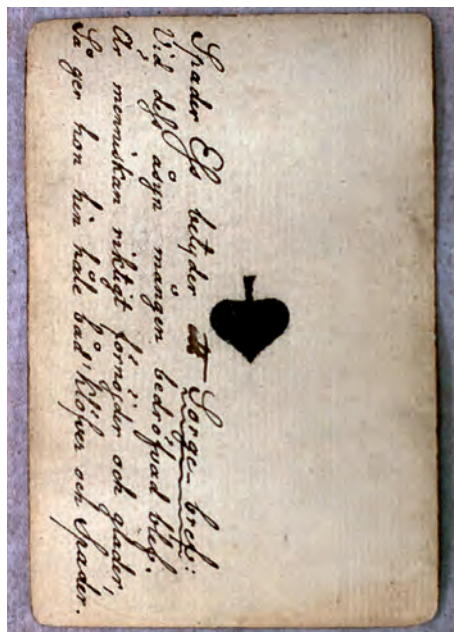 Spader Ess betyder ett Sorge-bref:
Vid dess åsyn mången bedröfvad blef.
Är menniskan riktigt förnöjder och glader,
Så ger hon hin håle båd' klöfver och Spader.